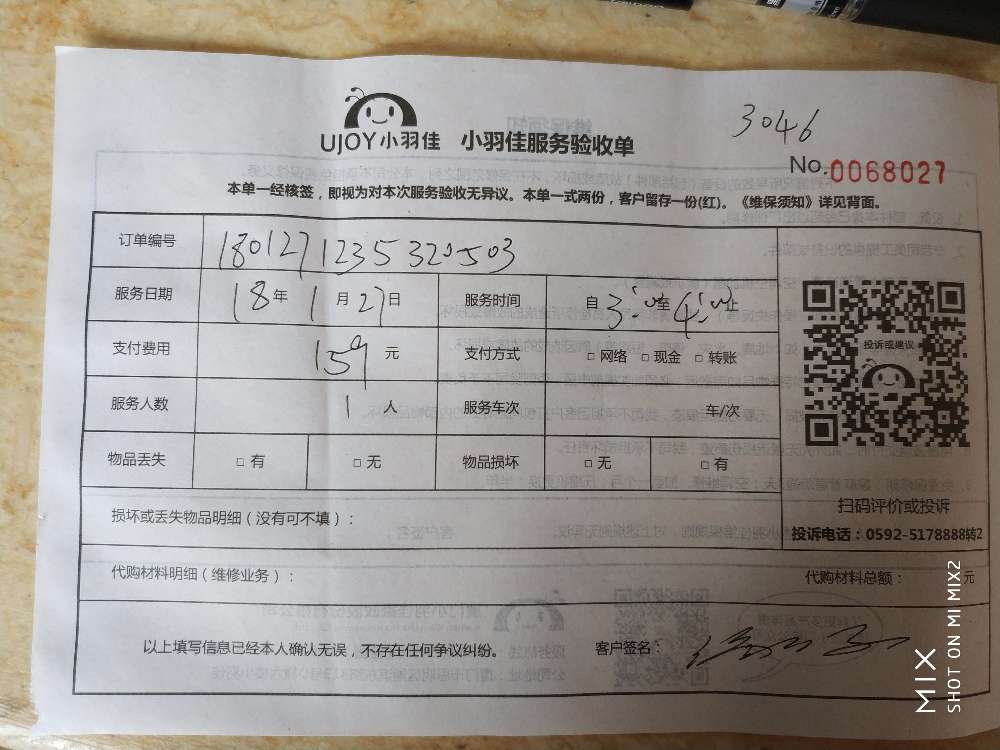 3046
UJOY小羽佳 小羽佳服务验收单
No.0068027
本单一经核签，即视为对本次服务验收无异议。本单一式两份，客户留存一份(红)。《维保须知》详见背面。
订单编号 1801271235320503
服务日期 18年1月27日 服务时间 自3:00至4:00止
支付费用 159元 支付方式 □网络 □现金 □转账
服务人数 1人 服务车次 车/次
物品丢失 □有 □无 物品损坏 □无 □有
投诉或建议
扫码评价或投诉
损坏或丢失物品明细（没有可不填）：
投诉电话：0592-5178888转2
代购材料明细（维修业务）： 代购材料总额： 元
以上填写信息已经本人确认无误，不存在任何争议纠纷。 客户签名：
MIX
SHOT ON MI MIX2